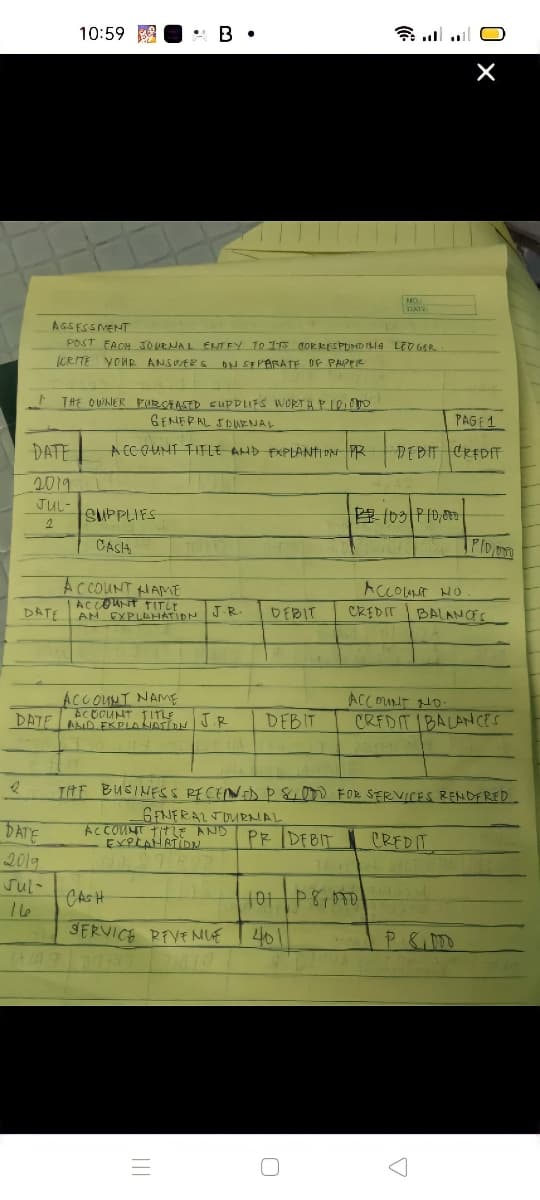 10:59 B
NO.:
DATE:
ASSESSMENT
POST EACH JOURNAL ENTRY TO ITS CORRESPONDING LEDGER.
WRITE YOUR ANSWERS ON SEPARATE OF PAPER
1 THE OWNER PURCHASED SUPPLIES WORTH P 10,000
GENERAL JOURNAL PAGE 1
DATE ACCOUNT TITLE AND EXPLANTION PR DEBIT CREDIT
2019
JUL-
2 SUPPLIES 103 P10,000
CASH P10,000
ACCOUNT NAME ACCOUNT NO.
DATE ACCOUNT TITLE AN EXPLANATION J.R. DEBIT CREDIT BALANCES
ACCOUNT NAME ACCOUNT NO.
DATE ACCOUNT TITLE AND EXPLANATION J.R DEBIT CREDIT BALANCES
2 THE BUSINESS RECEIVED P 8,000 FOR SERVICES RENDERED
GENERAL JOURNAL
DATE ACCOUNT TITLE AND EXPLANATION PR DEBIT CREDIT
2019
JUL-
16 CASH 101 P8,000
SERVICE REVENUE 401 P 8,000